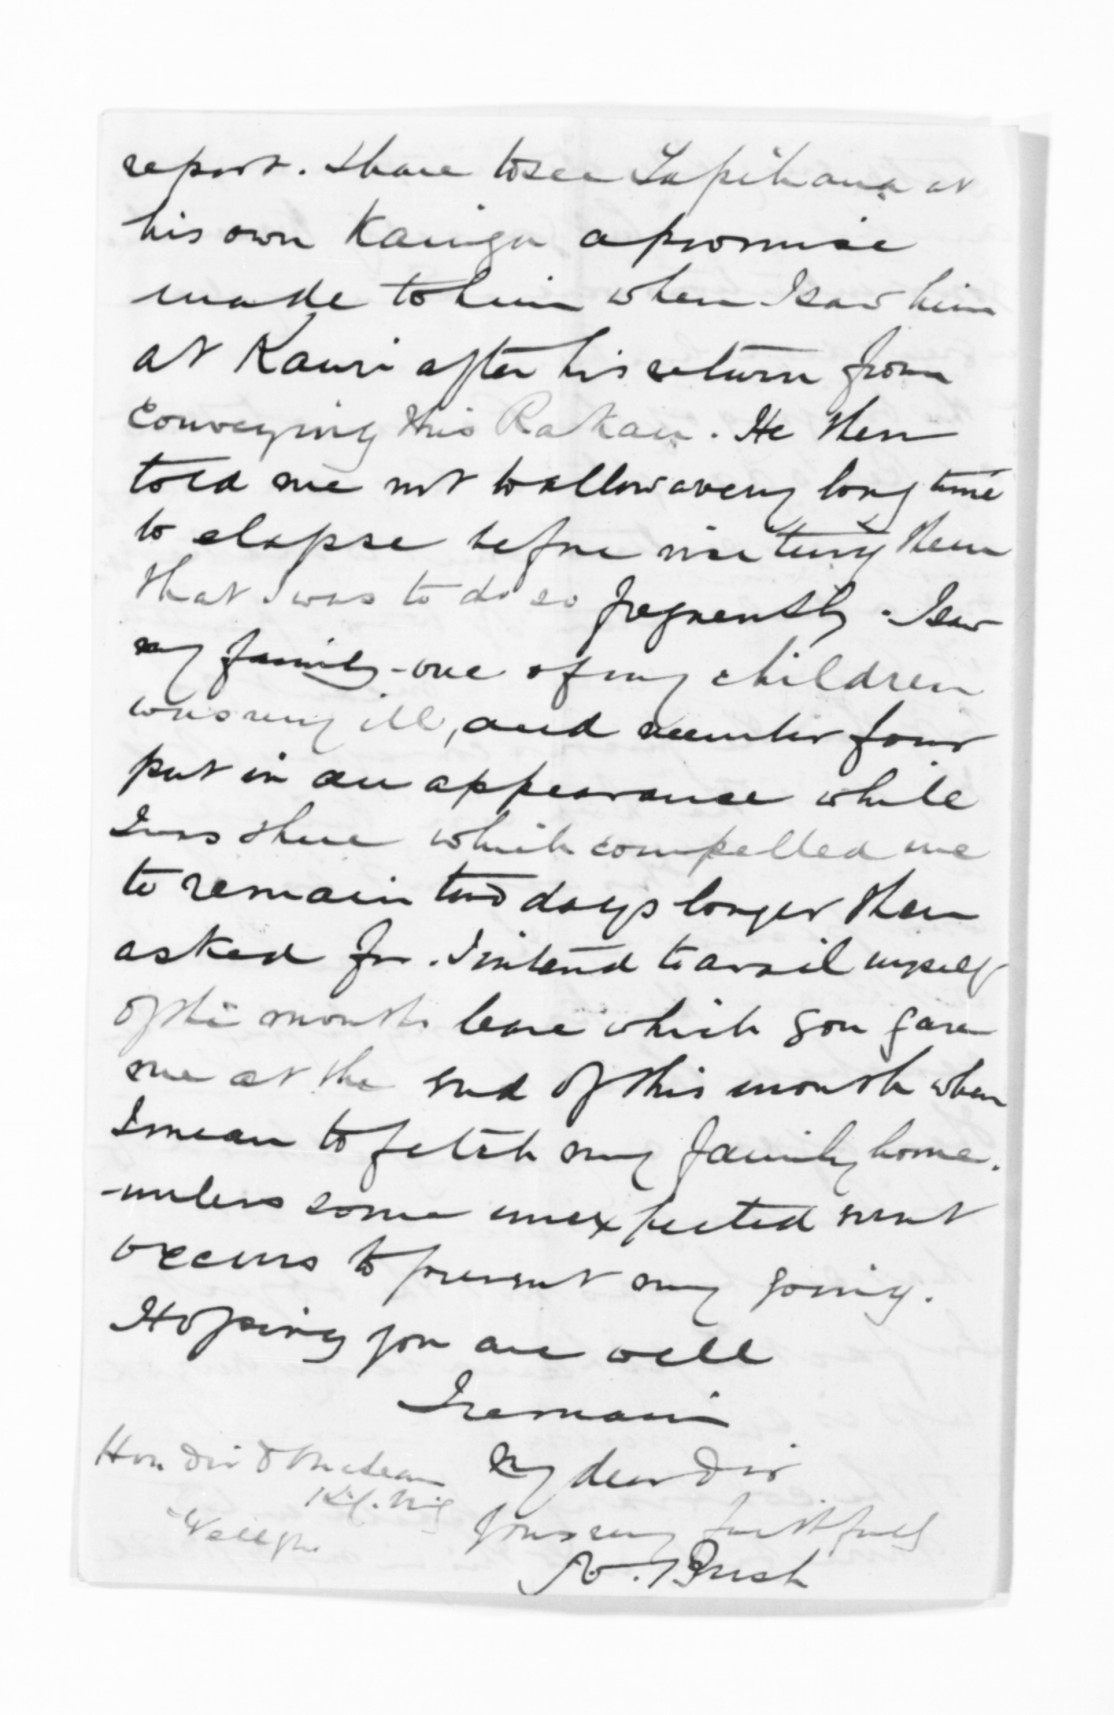 report. I have to see Tapihana at
his own Kainga a promise
made to him when I saw him
at Kawi after his return from
conveying this Rakau. He then
told me not to allow a very long time
to elapse before visiting them
that I was to do so frequently. I saw
my family - one of my children
was very ill, and number four
put in an appearance while
I was there which compelled me
to remain two days longer than
asked for. I intend to avail myself
of the months leave which you gave
me at the end of this month when
I mean to fetch my family home.
unless some unexpected event
occurs to prevent my going.
Hoping you are well
I remain
My dear Sir
Yours very faithfully
Bush
Hon Sir D McLean
K.C.M.G
Wellgtn